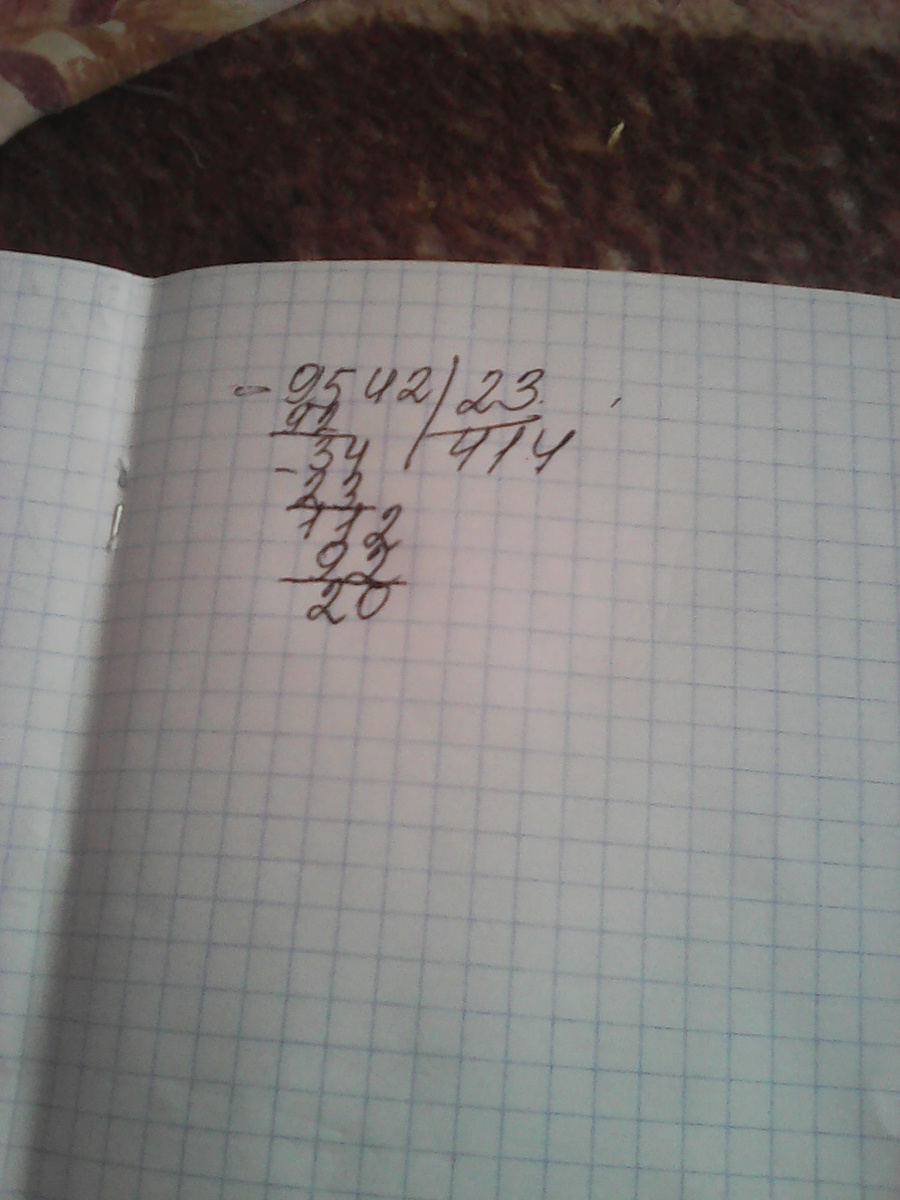 - 9542 | 23
92 414
- 34
23
112
92
20